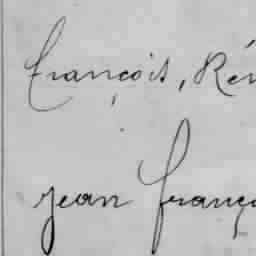 François, Rén
jean franço